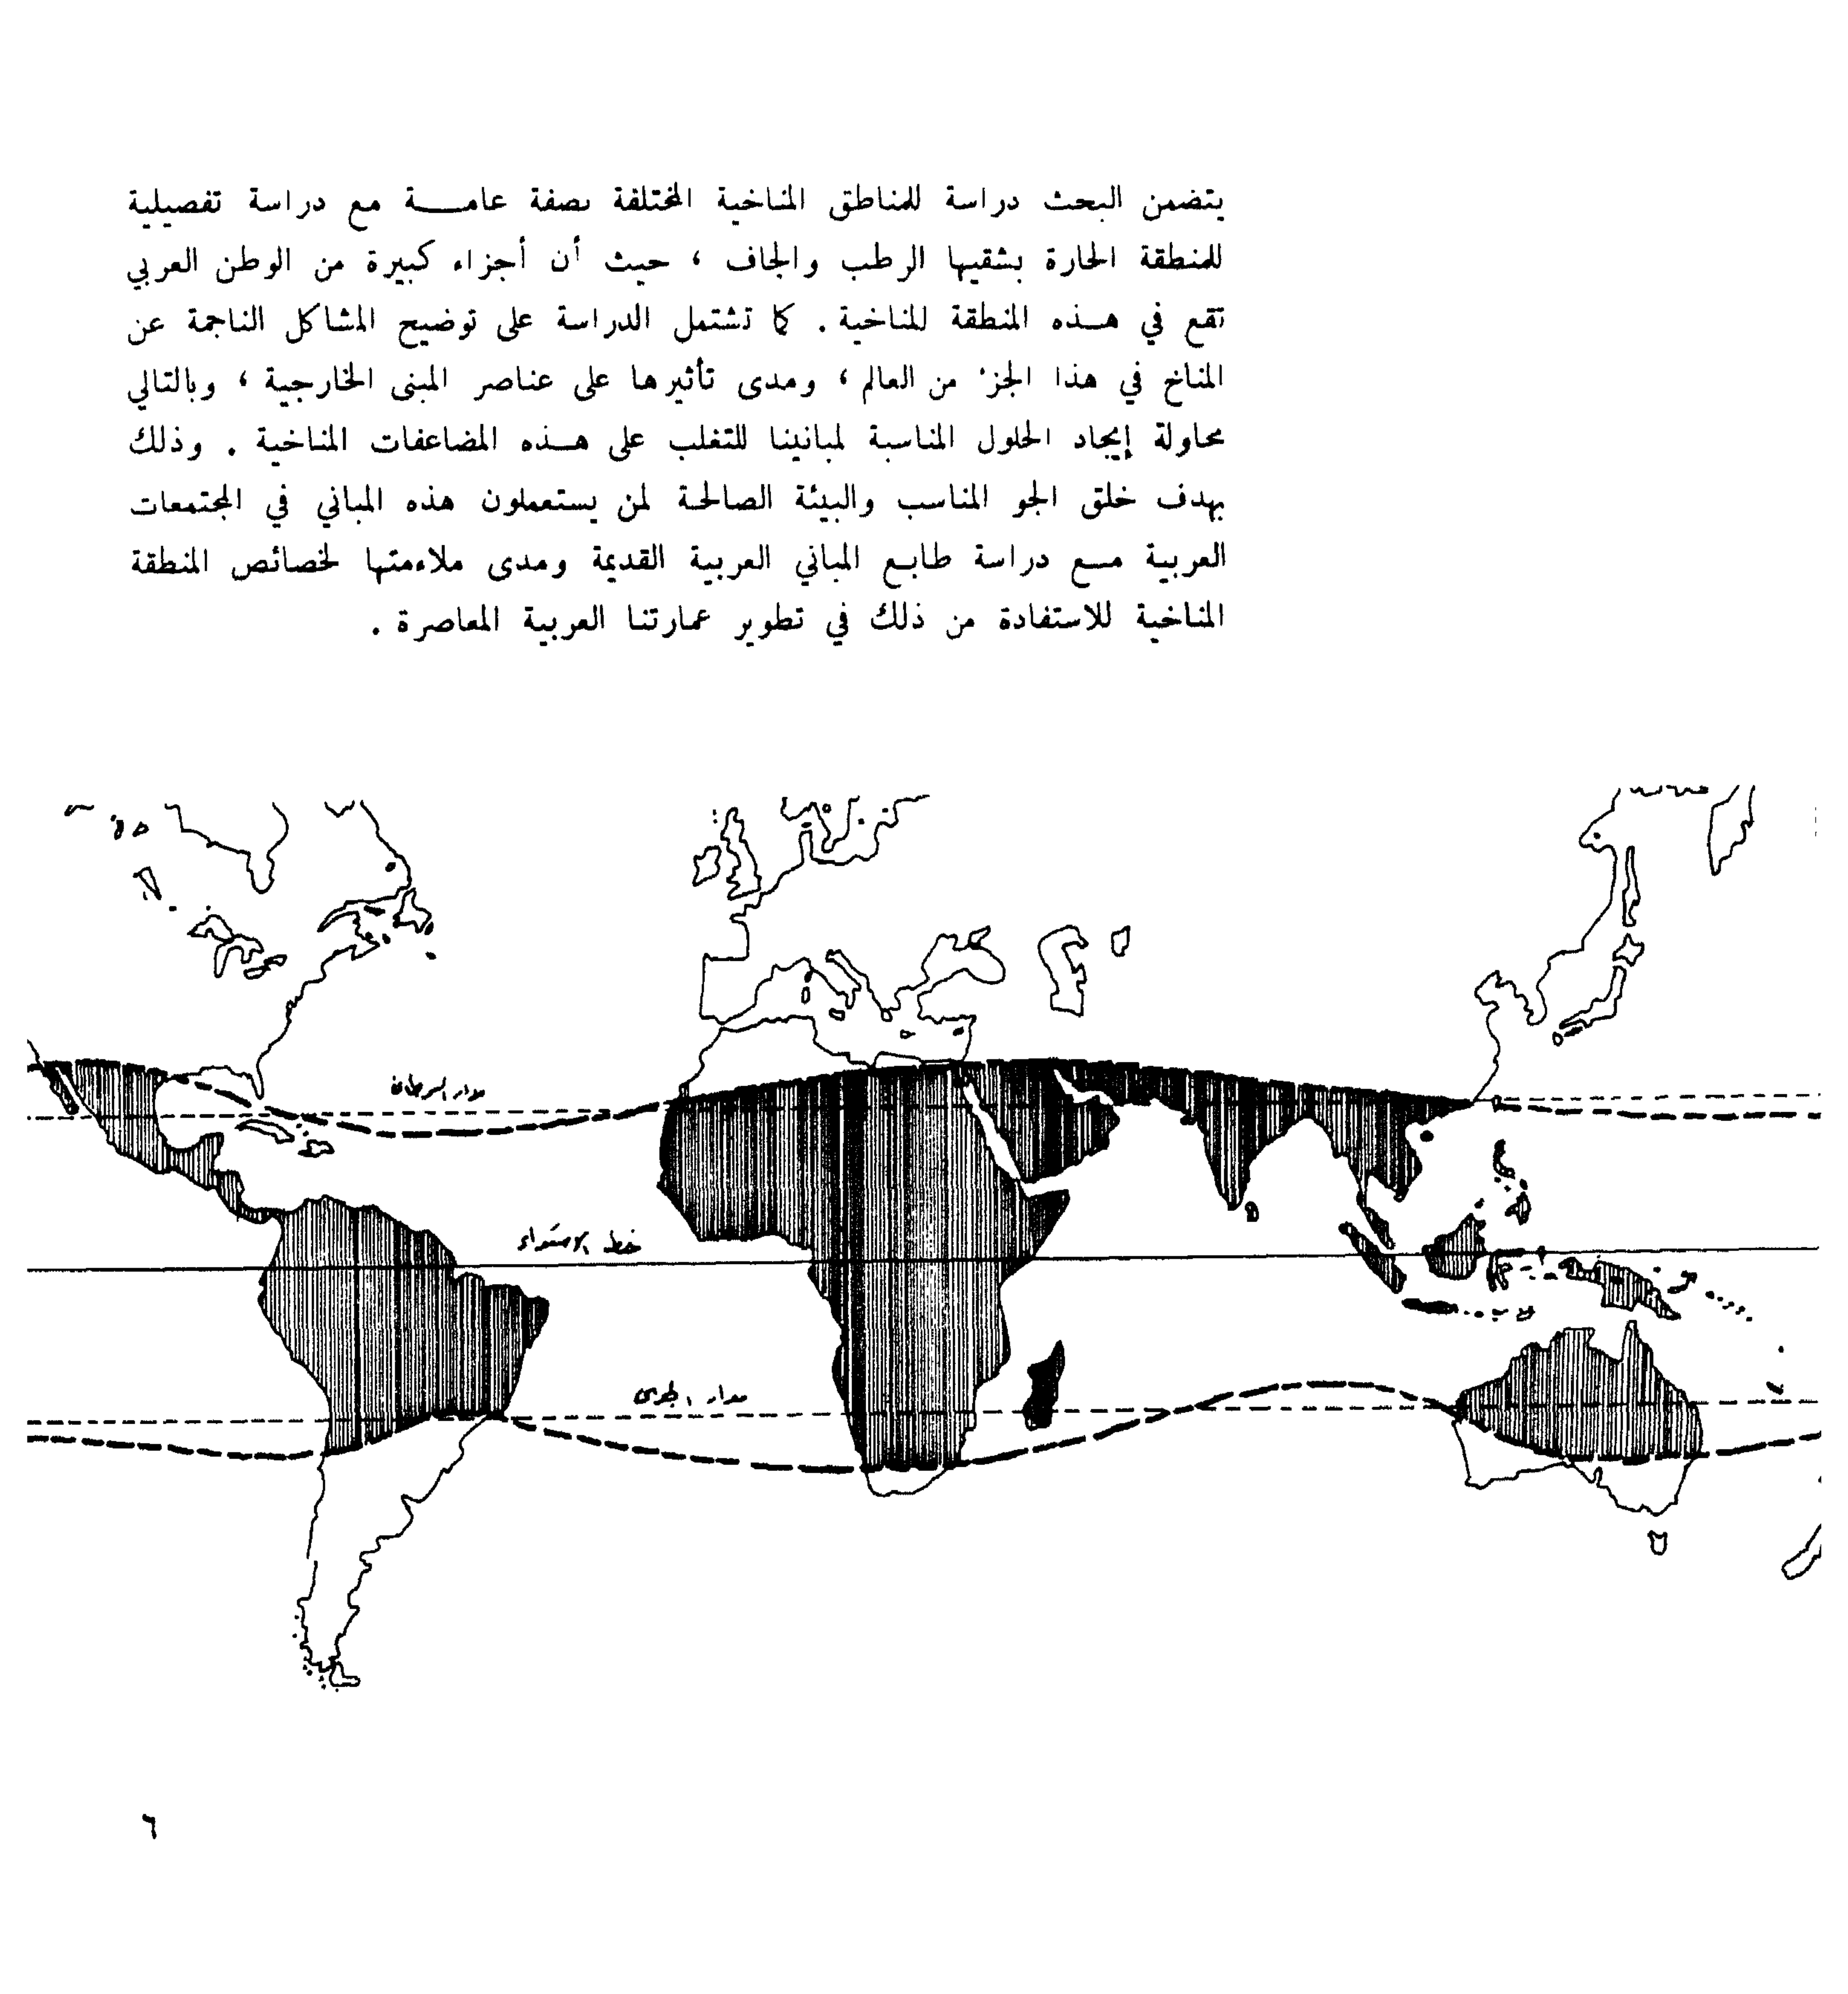 يتضمن البحث دراسة للمناطق المناخية المختلفة بصفة عامـــة مع دراسة تفصيلية
للمنطقة الحارة بشقيها الرطب والجاف ، حيث أن أجزاء كبيرة من الوطن العربي
تقع في هـذه المنطقة المناخية . كما تشتمل الدراسة على توضيح المشاكل الناجمة عن
المناخ في هذا الجزء من العالم ، ومدى تأثيرها على عناصر المبنى الخارجية ، وبالتالي
محاولة إيجاد الحلول المناسبة لمبانينا للتغلب على هـذه المضاعفات المناخية . وذلك
بهدف خلق الجو المناسب والبيئة الصالحة لمن يستعملون هذه المباني في المجتمعات
العربية مـع دراسة طابـع المباني العربية القديمة ومدى ملاءمتها لخصائص المنطقة
المناخية للاستفادة من ذلك في تطوير عمارتنا العربية المعاصرة .
مدار السرطان
خط الاستواء
مدار الجدى
٦